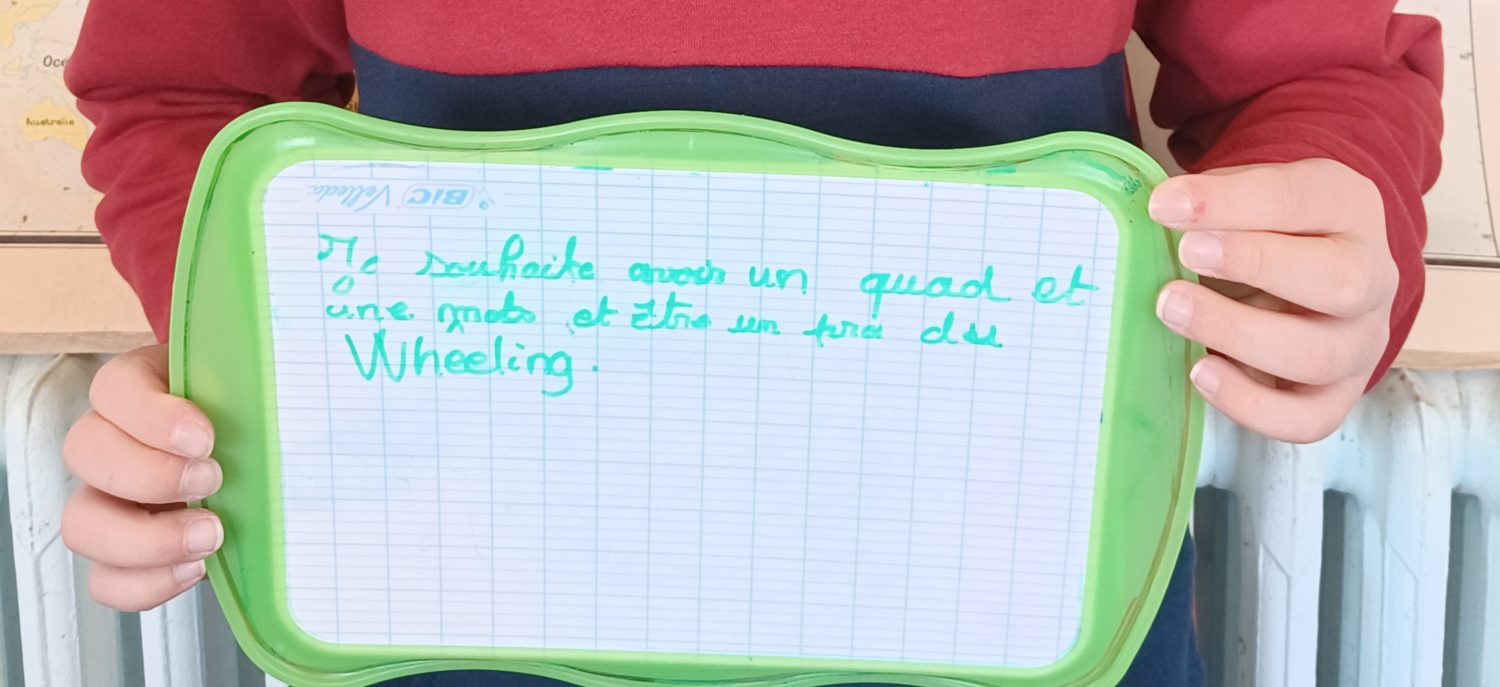 Oce
Australie
BIC Velleda
Je souhaite avoir un quad et
une moto et être un pro du
Wheeling.